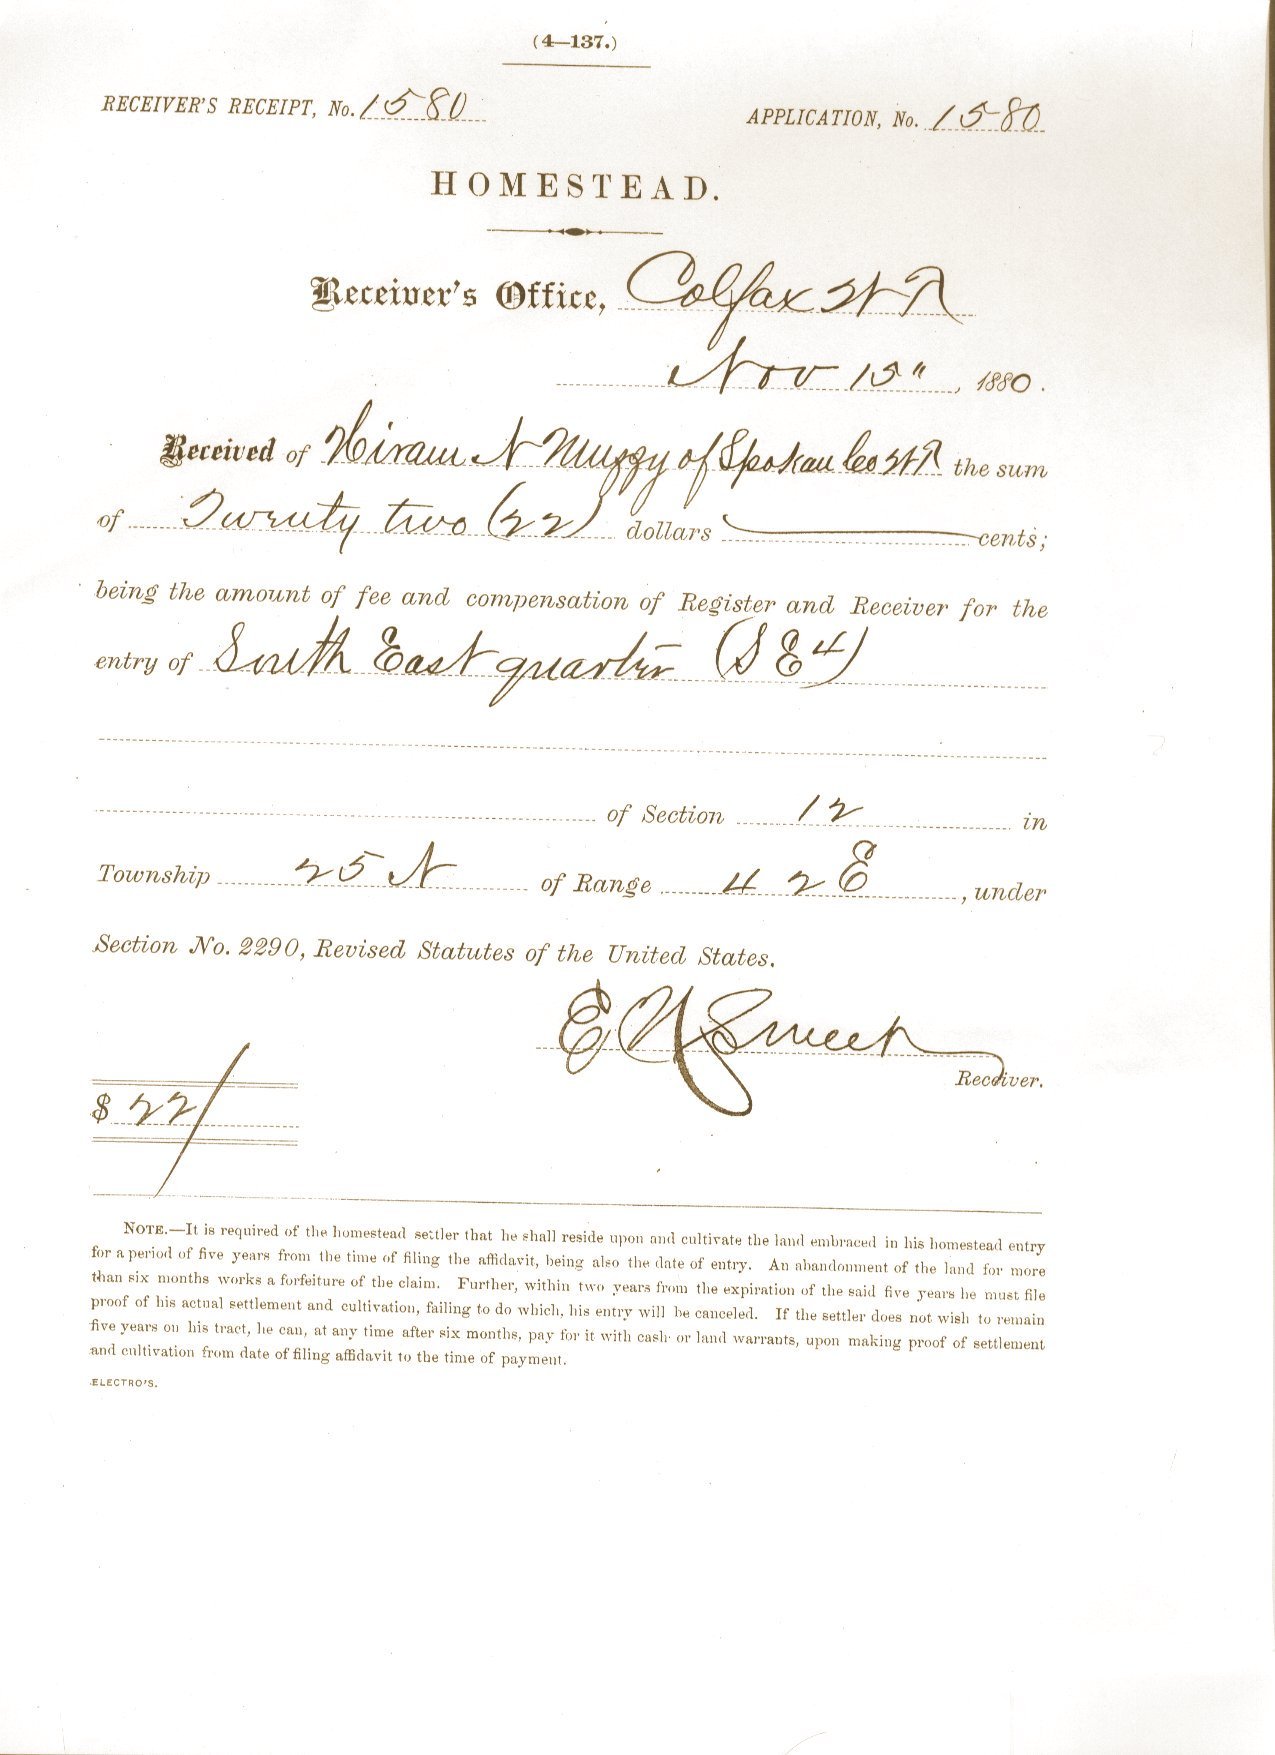 (4—137.)
RECEIVER'S RECEIPT, No. 1580
APPLICATION, No. 1580
HOMESTEAD.
Receiver's Office, Colfax W T
Nov 15", 1880.
Received of Hiram N Muzzy of Spokan Co W T the sum
of Twenty two (22) dollars cents;
being the amount of fee and compensation of Register and Receiver for the
entry of South East quarter (S E 4)
of Section 12 in
Township 25 N of Range 42 E, under
Section No. 2290, Revised Statutes of the United States.
E N Sweet
Receiver.
$ 22/
NOTE.—It is required of the homestead settler that he shall reside upon and cultivate the land embraced in his homestead entry
for a period of five years from the time of filing the affidavit, being also the date of entry. An abandonment of the land for more
than six months works a forfeiture of the claim. Further, within two years from the expiration of the said five years he must file
proof of his actual settlement and cultivation, failing to do which, his entry will be canceled. If the settler does not wish to remain
five years on his tract, he can, at any time after six months, pay for it with cash or land warrants, upon making proof of settlement
and cultivation from date of filing affidavit to the time of payment.
ELECTRO'S.